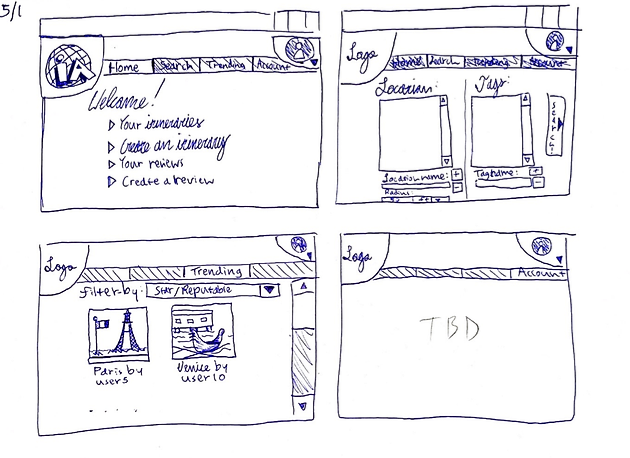 5/1
Home Search Trending Account
Welcome!
Your itineraries
Create an itinerary
Your reviews
Create a review
Logo
Home Search Trending Account
Location: Tags:
Search
Location name: + Tag name: +
- -
Radius:
Logo
Trending
Filter by: Star/Reputable
Paris by user5
Venice by user10
Logo
Account
TBD